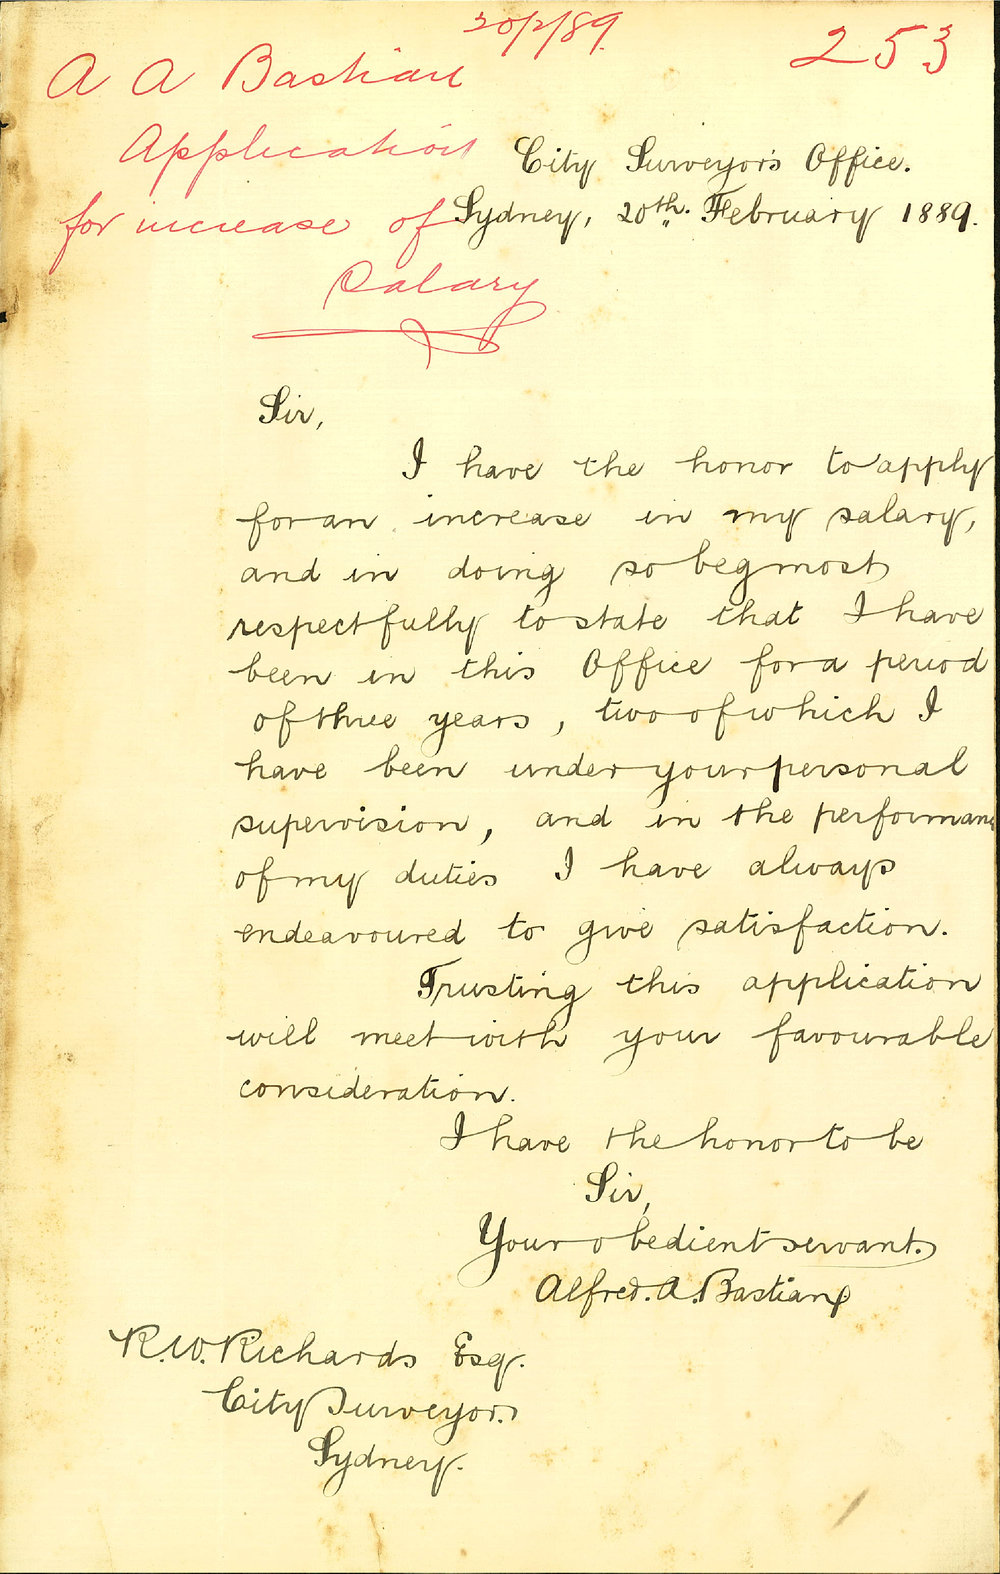 20/2/89.
253
A A Bastian
Application
for increase of
Salary
City Surveyor's Office.
Sydney, 20th. February 1889.
Sir,
I have the honor to apply
for an increase in my salary,
and in doing so beg most
respectfully to state that I have
been in this Office for a period
of three years, two of which I
have been under your personal
supervision, and in the performanc
of my duties I have always
endeavoured to give satisfaction.
Trusting this application
will meet with your favourable
consideration.
I have the honor to be
Sir,
Your obedient servant.
Alfred. A. Bastian
R. W. Richards Esq.
City Surveyor.
Sydney.